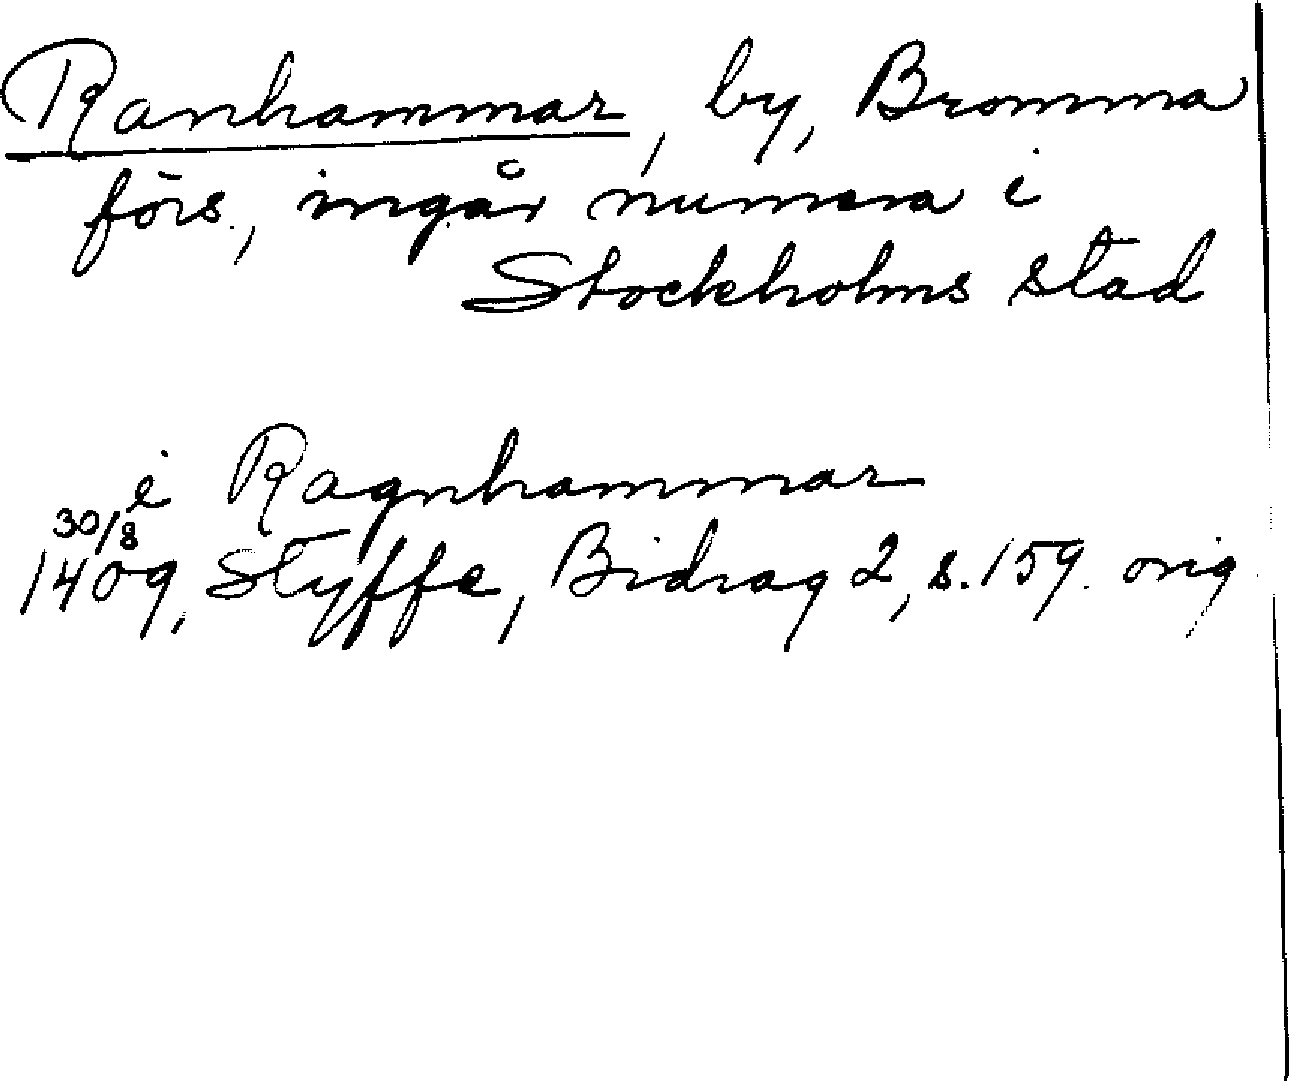 Ranhammar, by, Bromma
förs., ingår numera i
Stockholms stad
i Ragnhammar
30/8
1409, Styffe, Bidrag 2, s. 159. orig